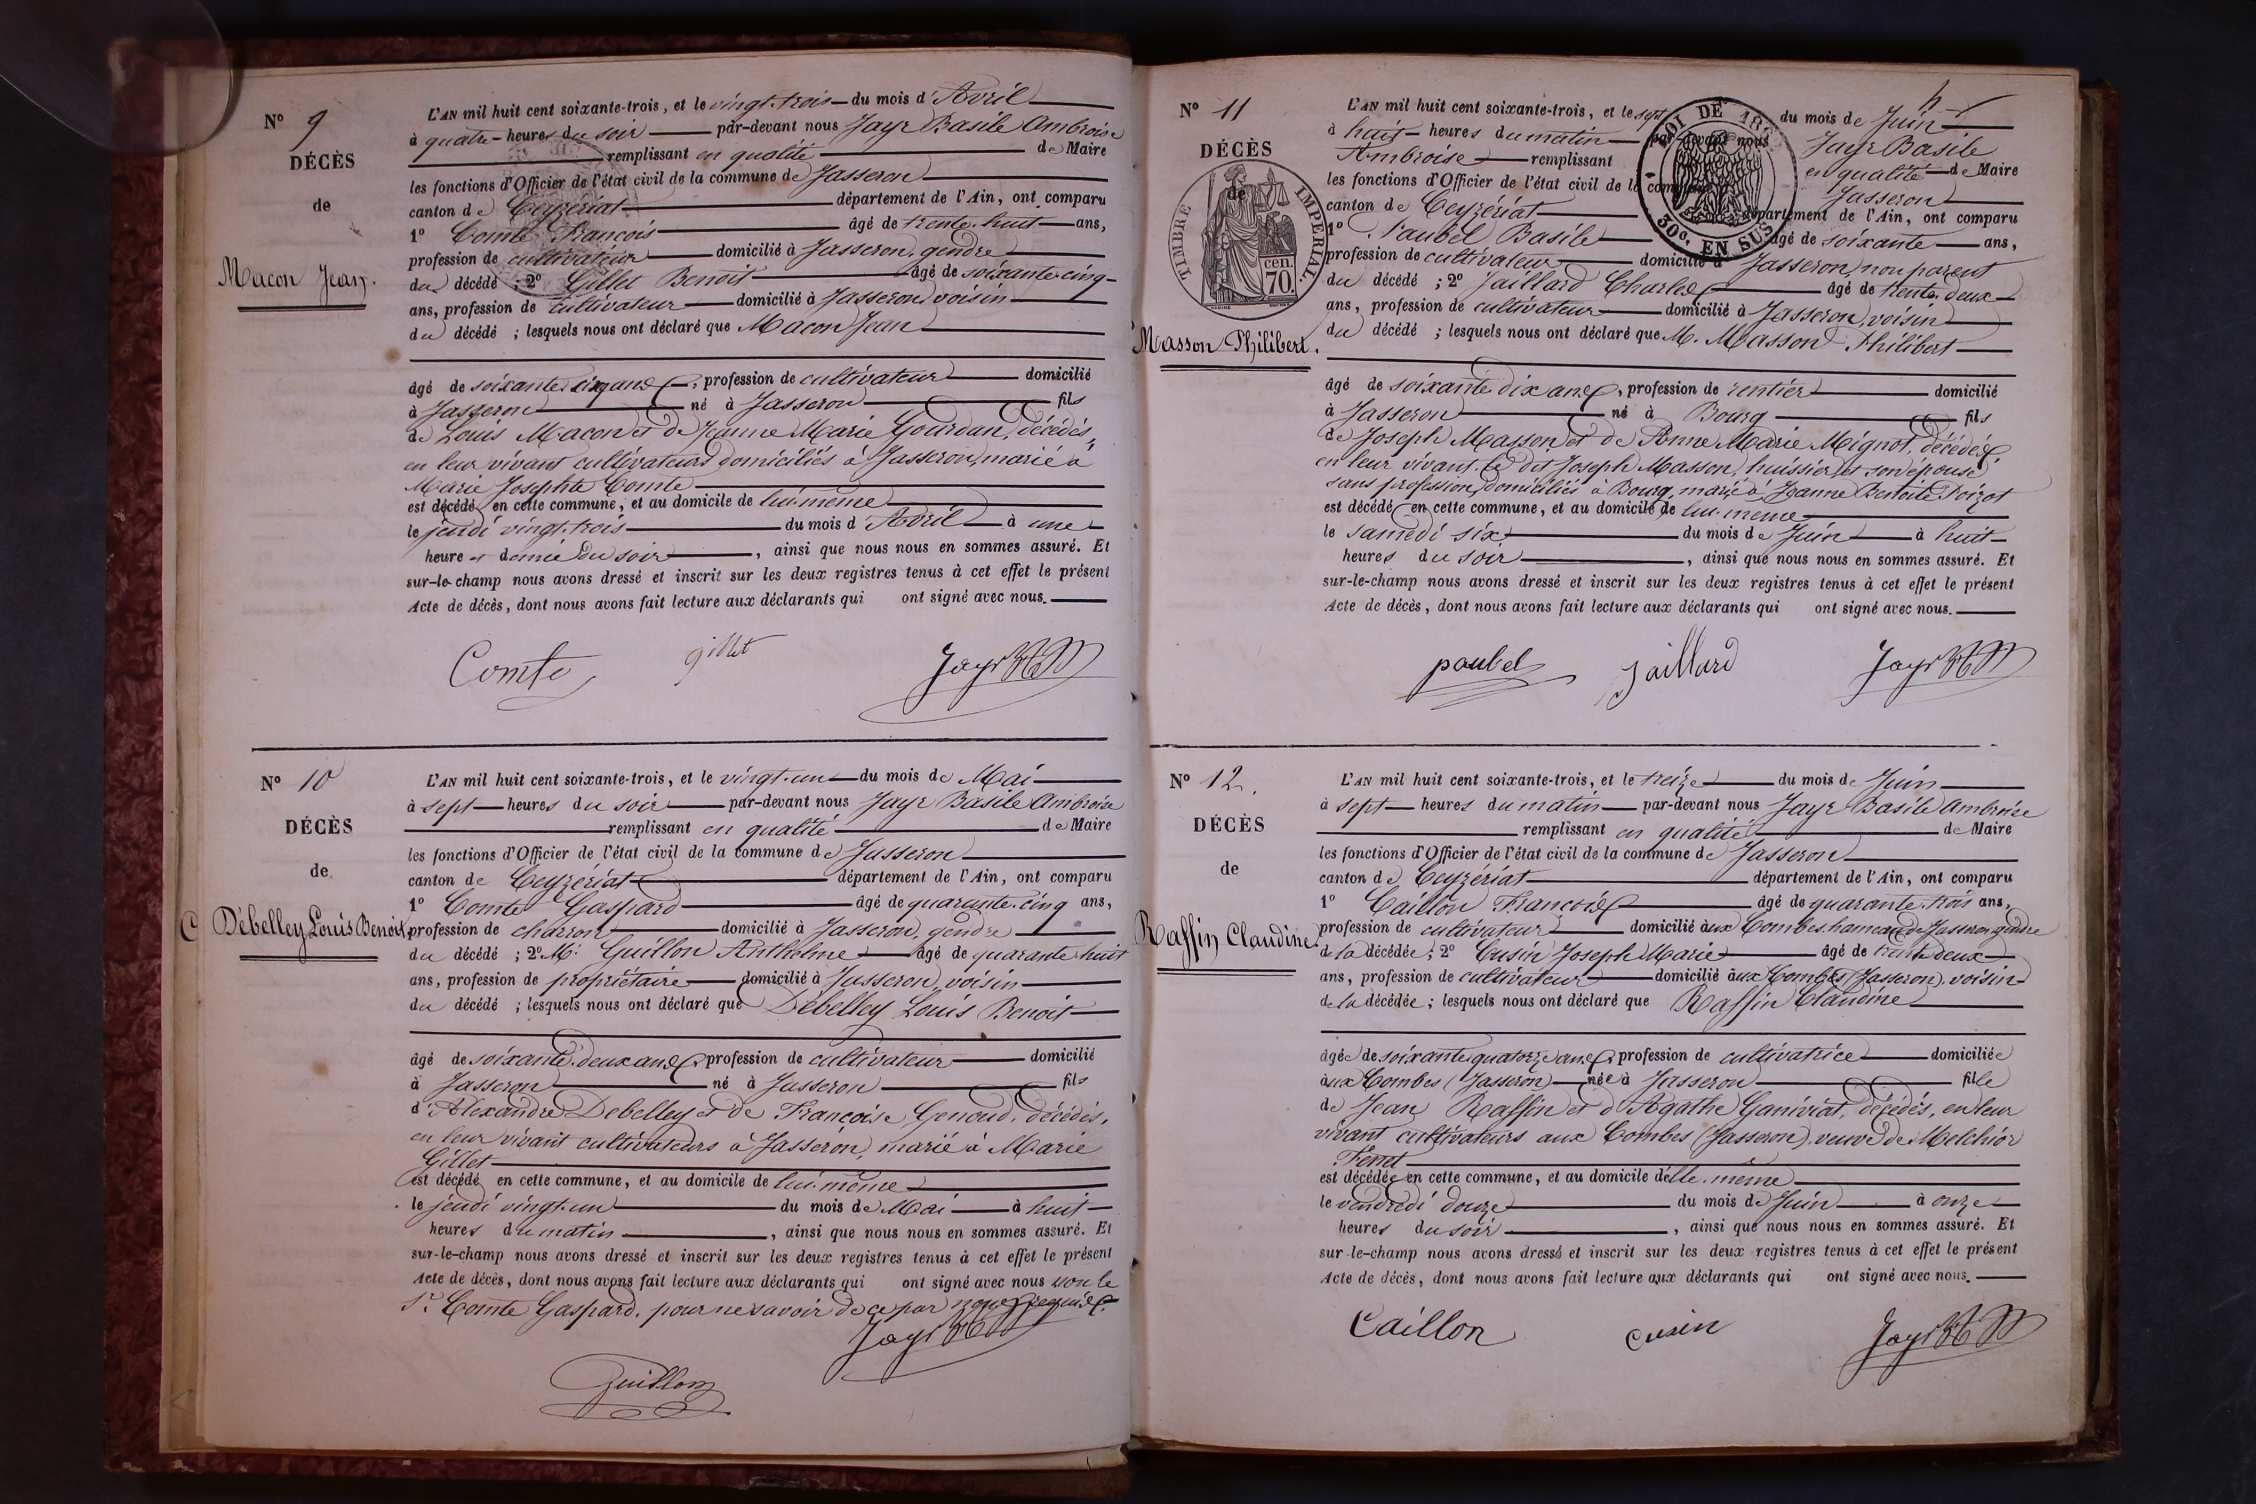 N° 9
DÉCÈS
de
Macon Jean.
L'AN mil huit cent soixante-trois, et le vingt-trois du mois d'Avril
à quatre heures du soir par-devant nous Jayr Basile Ambroise
remplissant en qualité de Maire
les fonctions d'Officier de l'état civil de la commune de Jasseron
canton de Ceyzériat département de l'Ain, ont comparu
1° Comte François âgé de trente-huit ans,
profession de cultivateur domicilié à Jasseron, gendre
du décédé ; 2° Gillet Benoit âgé de soixante-cinq
ans, profession de cultivateur domicilié à Jasseron, voisin
du décédé ; lesquels nous ont déclaré que Macon Jean
âgé de soixante ans, profession de cultivateur domicilié
à Jasseron né à Jasseron fils
de Louis Macon et de Jeanne Marie Gourdan, décédés,
en leur vivant cultivateurs domiciliés à Jasseron, marié à
Marie Josephte Comte
est décédé en cette commune, et au domicile de lui-même
le jeudi vingt-trois du mois d'Avril à une
heure et demie du soir, ainsi que nous nous en sommes assuré. Et
sur-le-champ nous avons dressé et inscrit sur les deux registres tenus à cet effet le présent
Acte de décès, dont nous avons fait lecture aux déclarants qui ont signé avec nous.
Comte gillet Jayr
N° 10
DÉCÈS
de
C Débelley Louis Benoit
L'AN mil huit cent soixante-trois, et le vingt-un du mois de Mai
à sept heures du soir par-devant nous Jayr Basile Ambroise
remplissant en qualité de Maire
les fonctions d'Officier de l'état civil de la commune de Jasseron
canton de Ceyzériat département de l'Ain, ont comparu
1° Comte Gaspard âgé de quarante-cinq ans,
profession de charron domicilié à Jasseron, gendre
du décédé ; 2° M. Guillon Anthelme âgé de quarante-huit
ans, profession de propriétaire domicilié à Jasseron, voisin
du décédé ; lesquels nous ont déclaré que Debelley Louis Benoit
âgé de soixante-deux ans, profession de cultivateur domicilié
à Jasseron né à Jasseron fils
d'Alexandre Debelley et de Françoise Genoud, décédés,
en leur vivant cultivateurs à Jasseron, marié à Marie
Gillet
est décédé en cette commune, et au domicile de lui-même
le jeudi vingt-un du mois de Mai à huit
heures du matin, ainsi que nous nous en sommes assuré. Et
sur-le-champ nous avons dressé et inscrit sur les deux registres tenus à cet effet le présent
Acte de décès, dont nous avons fait lecture aux déclarants qui ont signé avec nous non le
Sr. Comte Gaspard, pour ne savoir de ce par nous requis.
Jayr
Guillon
N° 11
DÉCÈS
de
TIMBRE IMPERIAL
70 cen.
Masson Philibert.
4
L'AN mil huit cent soixante-trois, et le sept du mois de Juin
à huit heures du matin par-devant nous Jayr Basile
Ambroise remplissant en qualité de Maire
les fonctions d'Officier de l'état civil de la commune de Jasseron
canton de Ceyzériat département de l'Ain, ont comparu
LOI DE 30c. EN SUS
1° Paubel Basile âgé de soixante ans,
profession de cultivateur domicilié à Jasseron, non parent
du décédé ; 2° Jaillard Charles âgé de trente-deux
ans, profession de cultivateur domicilié à Jasseron, voisin
du décédé ; lesquels nous ont déclaré que M. Masson Philibert
âgé de soixante-dix ans, profession de rentier domicilié
à Jasseron né à Bourg fils
de Joseph Masson et de Anne Marie Mignot, décédés,
en leur vivant le dit Joseph Masson, huissier, et son épouse
sans profession, domiciliés à Bourg, marié à Jeanne Benoite Poizat
est décédé en cette commune, et au domicile de lui-même
le samedi six du mois de Juin à huit
heures du soir, ainsi que nous nous en sommes assuré. Et
sur-le-champ nous avons dressé et inscrit sur les deux registres tenus à cet effet le présent
Acte de décès, dont nous avons fait lecture aux déclarants qui ont signé avec nous.
paubel Jaillard Jayr
N° 12.
DÉCÈS
de
Raffin Claudine.
L'AN mil huit cent soixante-trois, et le treize du mois de Juin
à sept heures du matin par-devant nous Jayr Basile Ambroise
remplissant en qualité de Maire
les fonctions d'Officier de l'état civil de la commune de Jasseron
canton de Ceyzériat département de l'Ain, ont comparu
1° Caillon François âgé de quarante-trois ans,
profession de cultivateur domicilié aux Combes, hameau de Jasseron, gendre
de la décédée ; 2° Cusin Joseph Marie âgé de trente-deux
ans, profession de cultivateur domicilié aux Combes (Jasseron), voisin
de la décédée ; lesquels nous ont déclaré que Raffin Claudine
âgée de soixante-quatorze ans, profession de cultivatrice domiciliée
aux Combes (Jasseron) née à Jasseron fille
de Jean Raffin et d'Agathe Ganiviat, décédés, en leur
vivant cultivateurs aux Combes (Jasseron), veuve de Melchior
Ferret
est décédée en cette commune, et au domicile d'elle-même
le vendredi douze du mois de Juin à onze
heures du soir, ainsi que nous nous en sommes assuré. Et
sur-le-champ nous avons dressé et inscrit sur les deux registres tenus à cet effet le présent
Acte de décès, dont nous avons fait lecture aux déclarants qui ont signé avec nous.
Caillon cusin Jayr